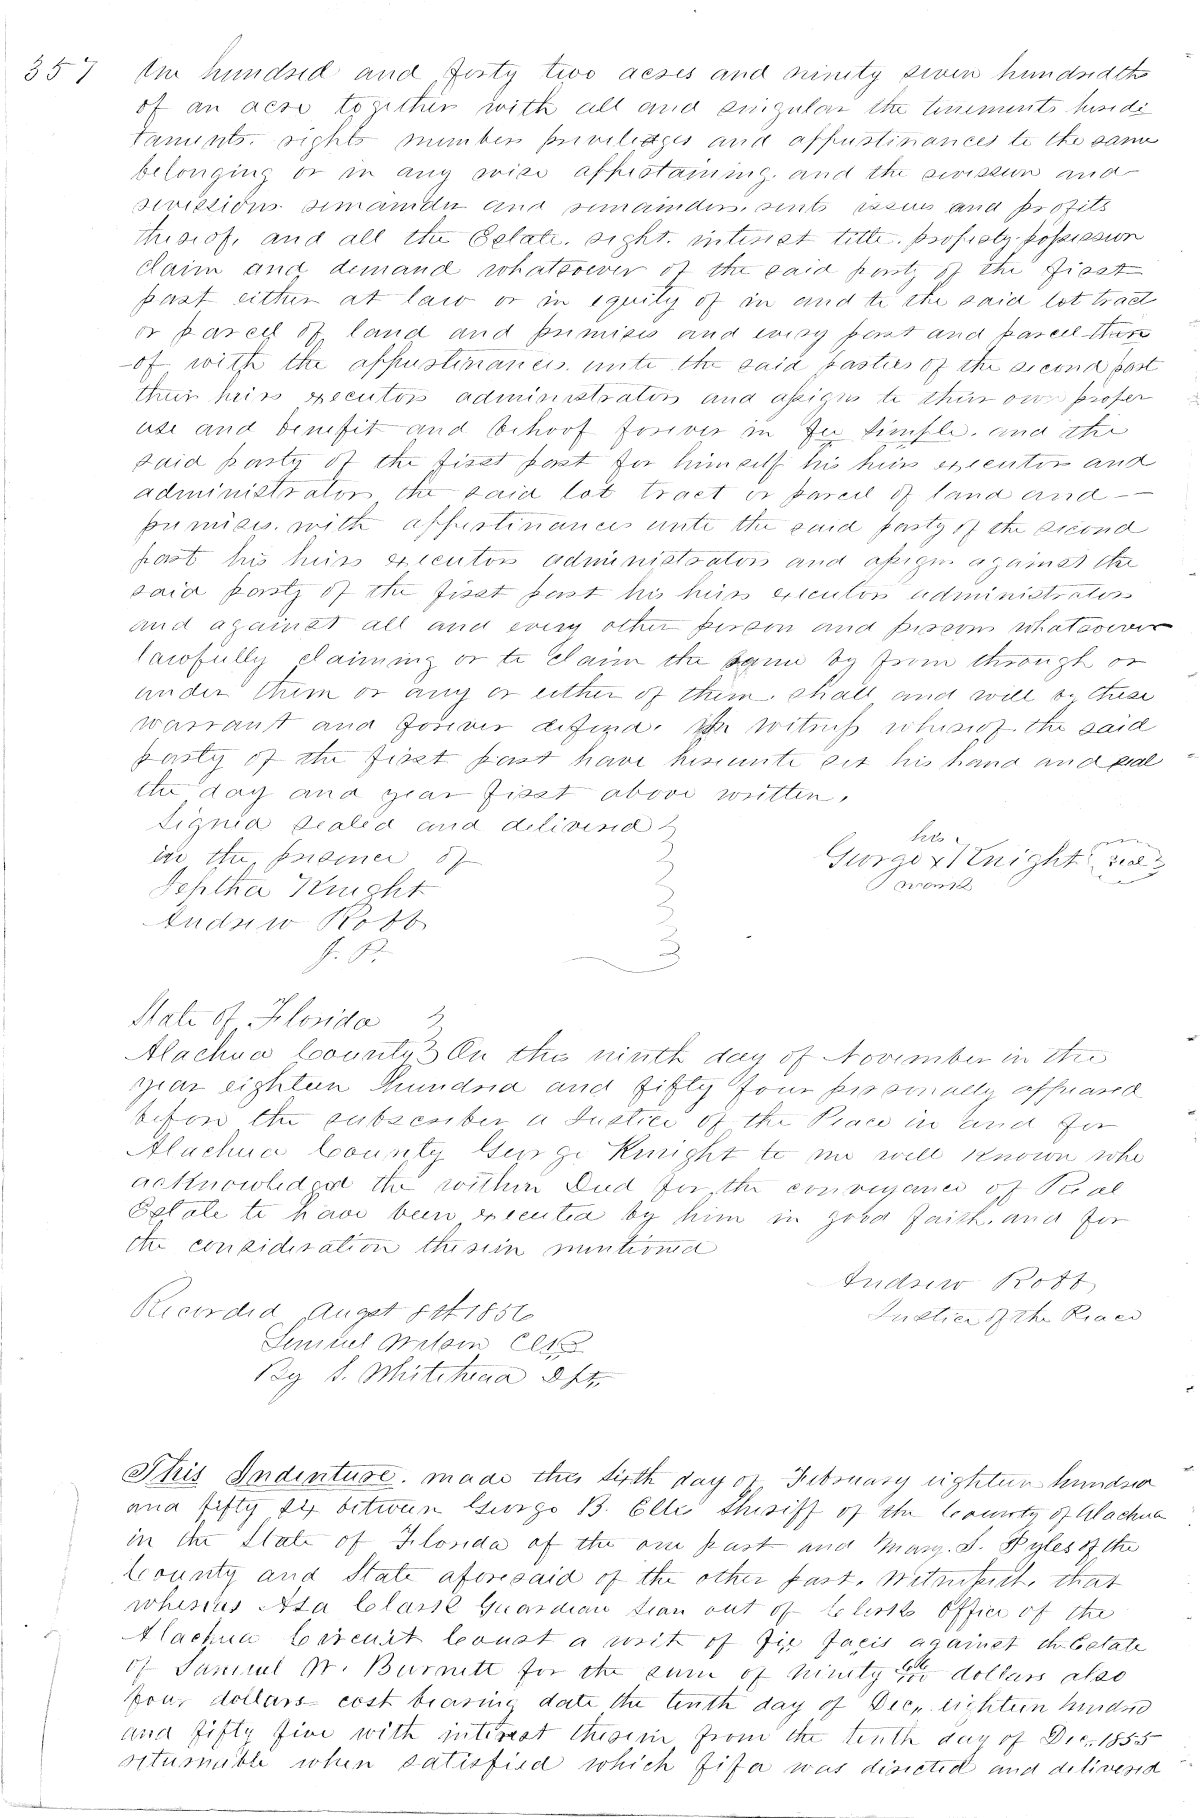 357
One hundred and forty two acres and ninety seven hundredths
of an acre together with all and singular the tenements heredi
taments. rights members priviledges and appurtinances to the same
belonging or in any wise appertaining. and the revission and
revissions remainder and remainders. rents issues and profits
thereof, and all the Estate. right. interest title. property. possession
claim and demand whatsoever of the said party of the first
part either at law or in equity of in and to the said lot tract
or parcel of land and premises and every part and parcel there
-of with the appurtinances. unto the said parties of the second part
their heirs executors administrators and assigns to their own proper
use and benefit and behoof forever in fee simple. and the
said party of the first part for himself his heirs executors and
administrators the said lot tract or parcel of land and —
premises. with appurtinances unto the said party of the second
part his heirs executors administrators and assigns against the
said party of the first part his heirs executors administrators
and against all and every other person and persons whatsoever
lawfully claiming or to claim the same by from through or
under them or any or either of them. shall and will by these
warrant and forever defend. In witness whereof the said
party of the first part have hereunto set his hand and seal
the day and year first above written.
Signed sealed and delivered
in the presence of
Jeptha Knight
Andrew Robb
J. P.
his
George x Knight seal
mark
State of Florida
Alachua County On this ninth day of November in the
year eighteen hundred and fifty four personally appeared
before the subscriber a Justice of the Peace in and for
Alachua County George Knight to me well known who
acknowledged the within Deed for the conveyance of Real
Estate to have been executed by him in good faith. and for
the consideration therein mentioned
Andrew Robb
Justice of the Peace
Recorded Augst 8th 1856
Samuel Wilson Clk
By S. Whitehead Dpt.
This Indenture. made this Sixth day of February eighteen hundred
and fifty six between George B. Ellis Sheriff of the County of Alachua
in the State of Florida of the one part and Mary. S. Pyles of the
County and State aforesaid of the other part. Witnesseth. that
whereas Asa Clark Guardian sean out of Clerks Office of the
Alachua Circuit Court a writ of fie facis against the Estate
of Samuel W. Burnett for the sum of ninety dollars also
four dollars cost bearing date the tenth day of Dec. eighteen hundred
and fifty five with interest therein from the tenth day of Dec. 1855
returnable when satisfied which fifa was directed and delivered